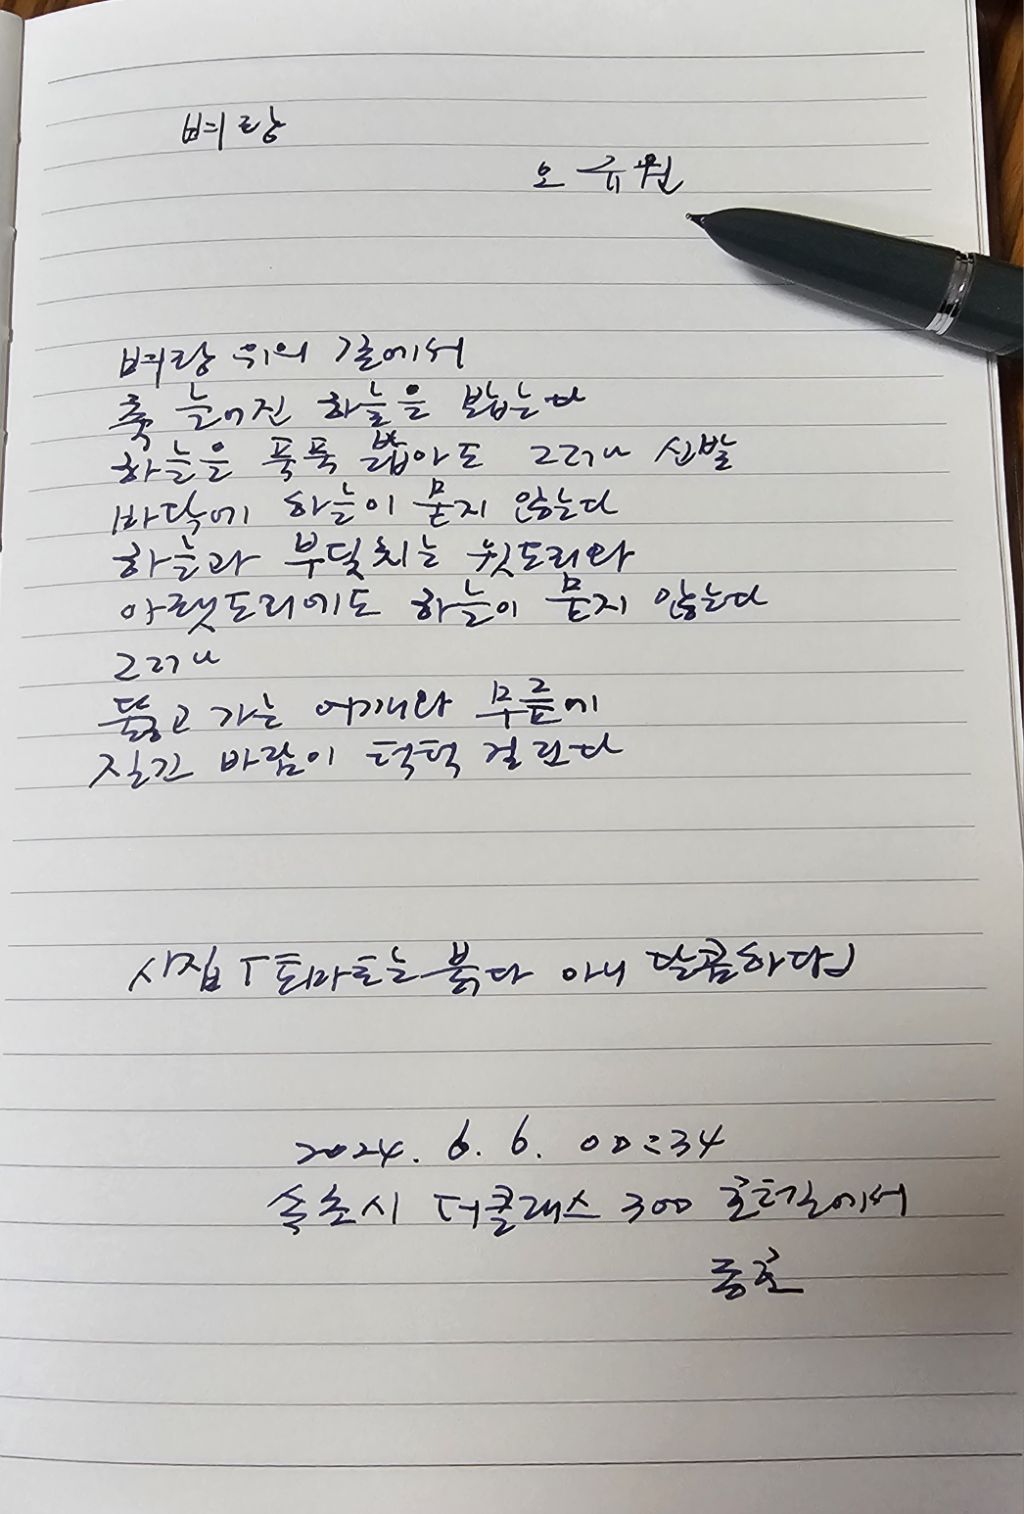 벼랑
오규원
벼랑 위의 길에서
축 늘어진 하늘을 밟는다
하늘을 푹푹 밟아도 그러나 신발
바닥에 하늘이 묻지 않는다
하늘과 부딪치는 윗도리와
아랫도리에도 하늘이 묻지 않는다
그러나
뚫고 가는 어깨와 무릎에
질긴 바람이 턱턱 걸린다
시집 「토마토는 붉다 아니 달콤하다」
2024. 6. 6. 00:34
속초시 더클래스 300 호텔에서